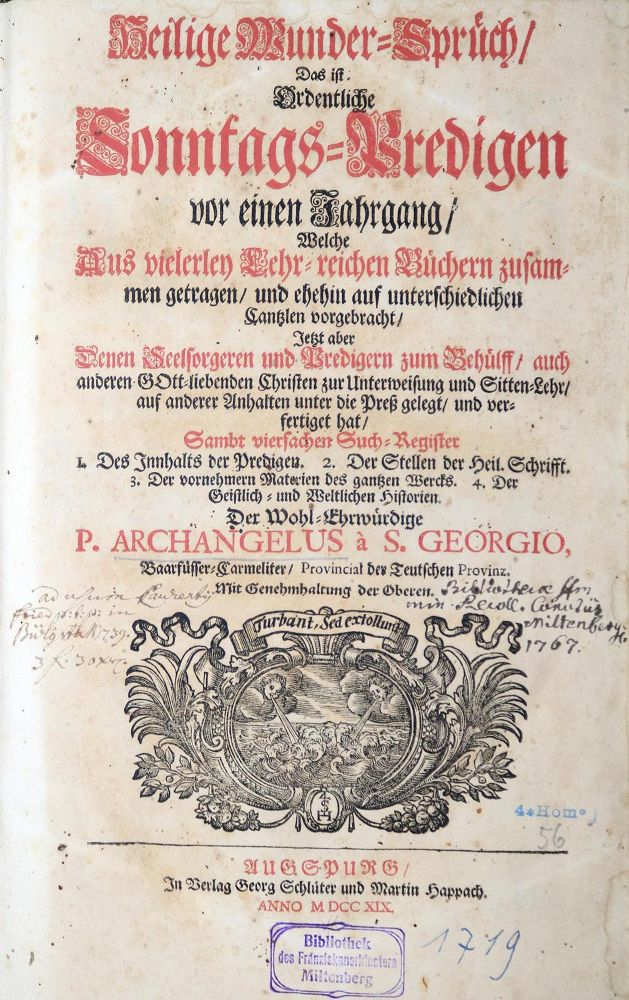 Heilige Wunder-Sprüch/
Das ist
Ordentliche
Sonntags-Predigen
vor einen Jahrgang/
Welche
Aus vielerley Lehr-reichen Büchern zusam-
men getragen/ und ehehin auf unterschiedlichen
Cantzlen vorgebracht/
Jetzt aber
Denen Seelsorgeren und Predigern zum Behülff/ auch
anderen GOtt-liebenden Christen zur Unterweisung und Sitten-Lehr/
auf anderer Anhalten unter die Preß gelegt/ und ver-
fertiget hat/
Sambt vierfachen Such-Register
1. Des Innhalts der Predigen. 2. Der Stellen der Heil. Schrifft.
3. Der vornehmern Materien des gantzen Wercks. 4. Der
Geistlich- und Weltlichen Historien.
Der Wohl-Ehrwürdige
P. ARCHANGELUS à S. GEORGIO,
Baarfüsser-Carmeliter/ Provincial der Teutschen Provinz.
Mit Genehmhaltung der Oberen.
ad usum
1739.
Bibliothecæ ffr.
min.
Miltenberg
1767.
Turbant, Sed extollunt
4° Hom.
56
AUGSPURG/
In Verlag Georg Schlüter und Martin Happach.
ANNO M DCC XIX.
Bibliothek
des Franziskanerklosters
Miltenberg
1719